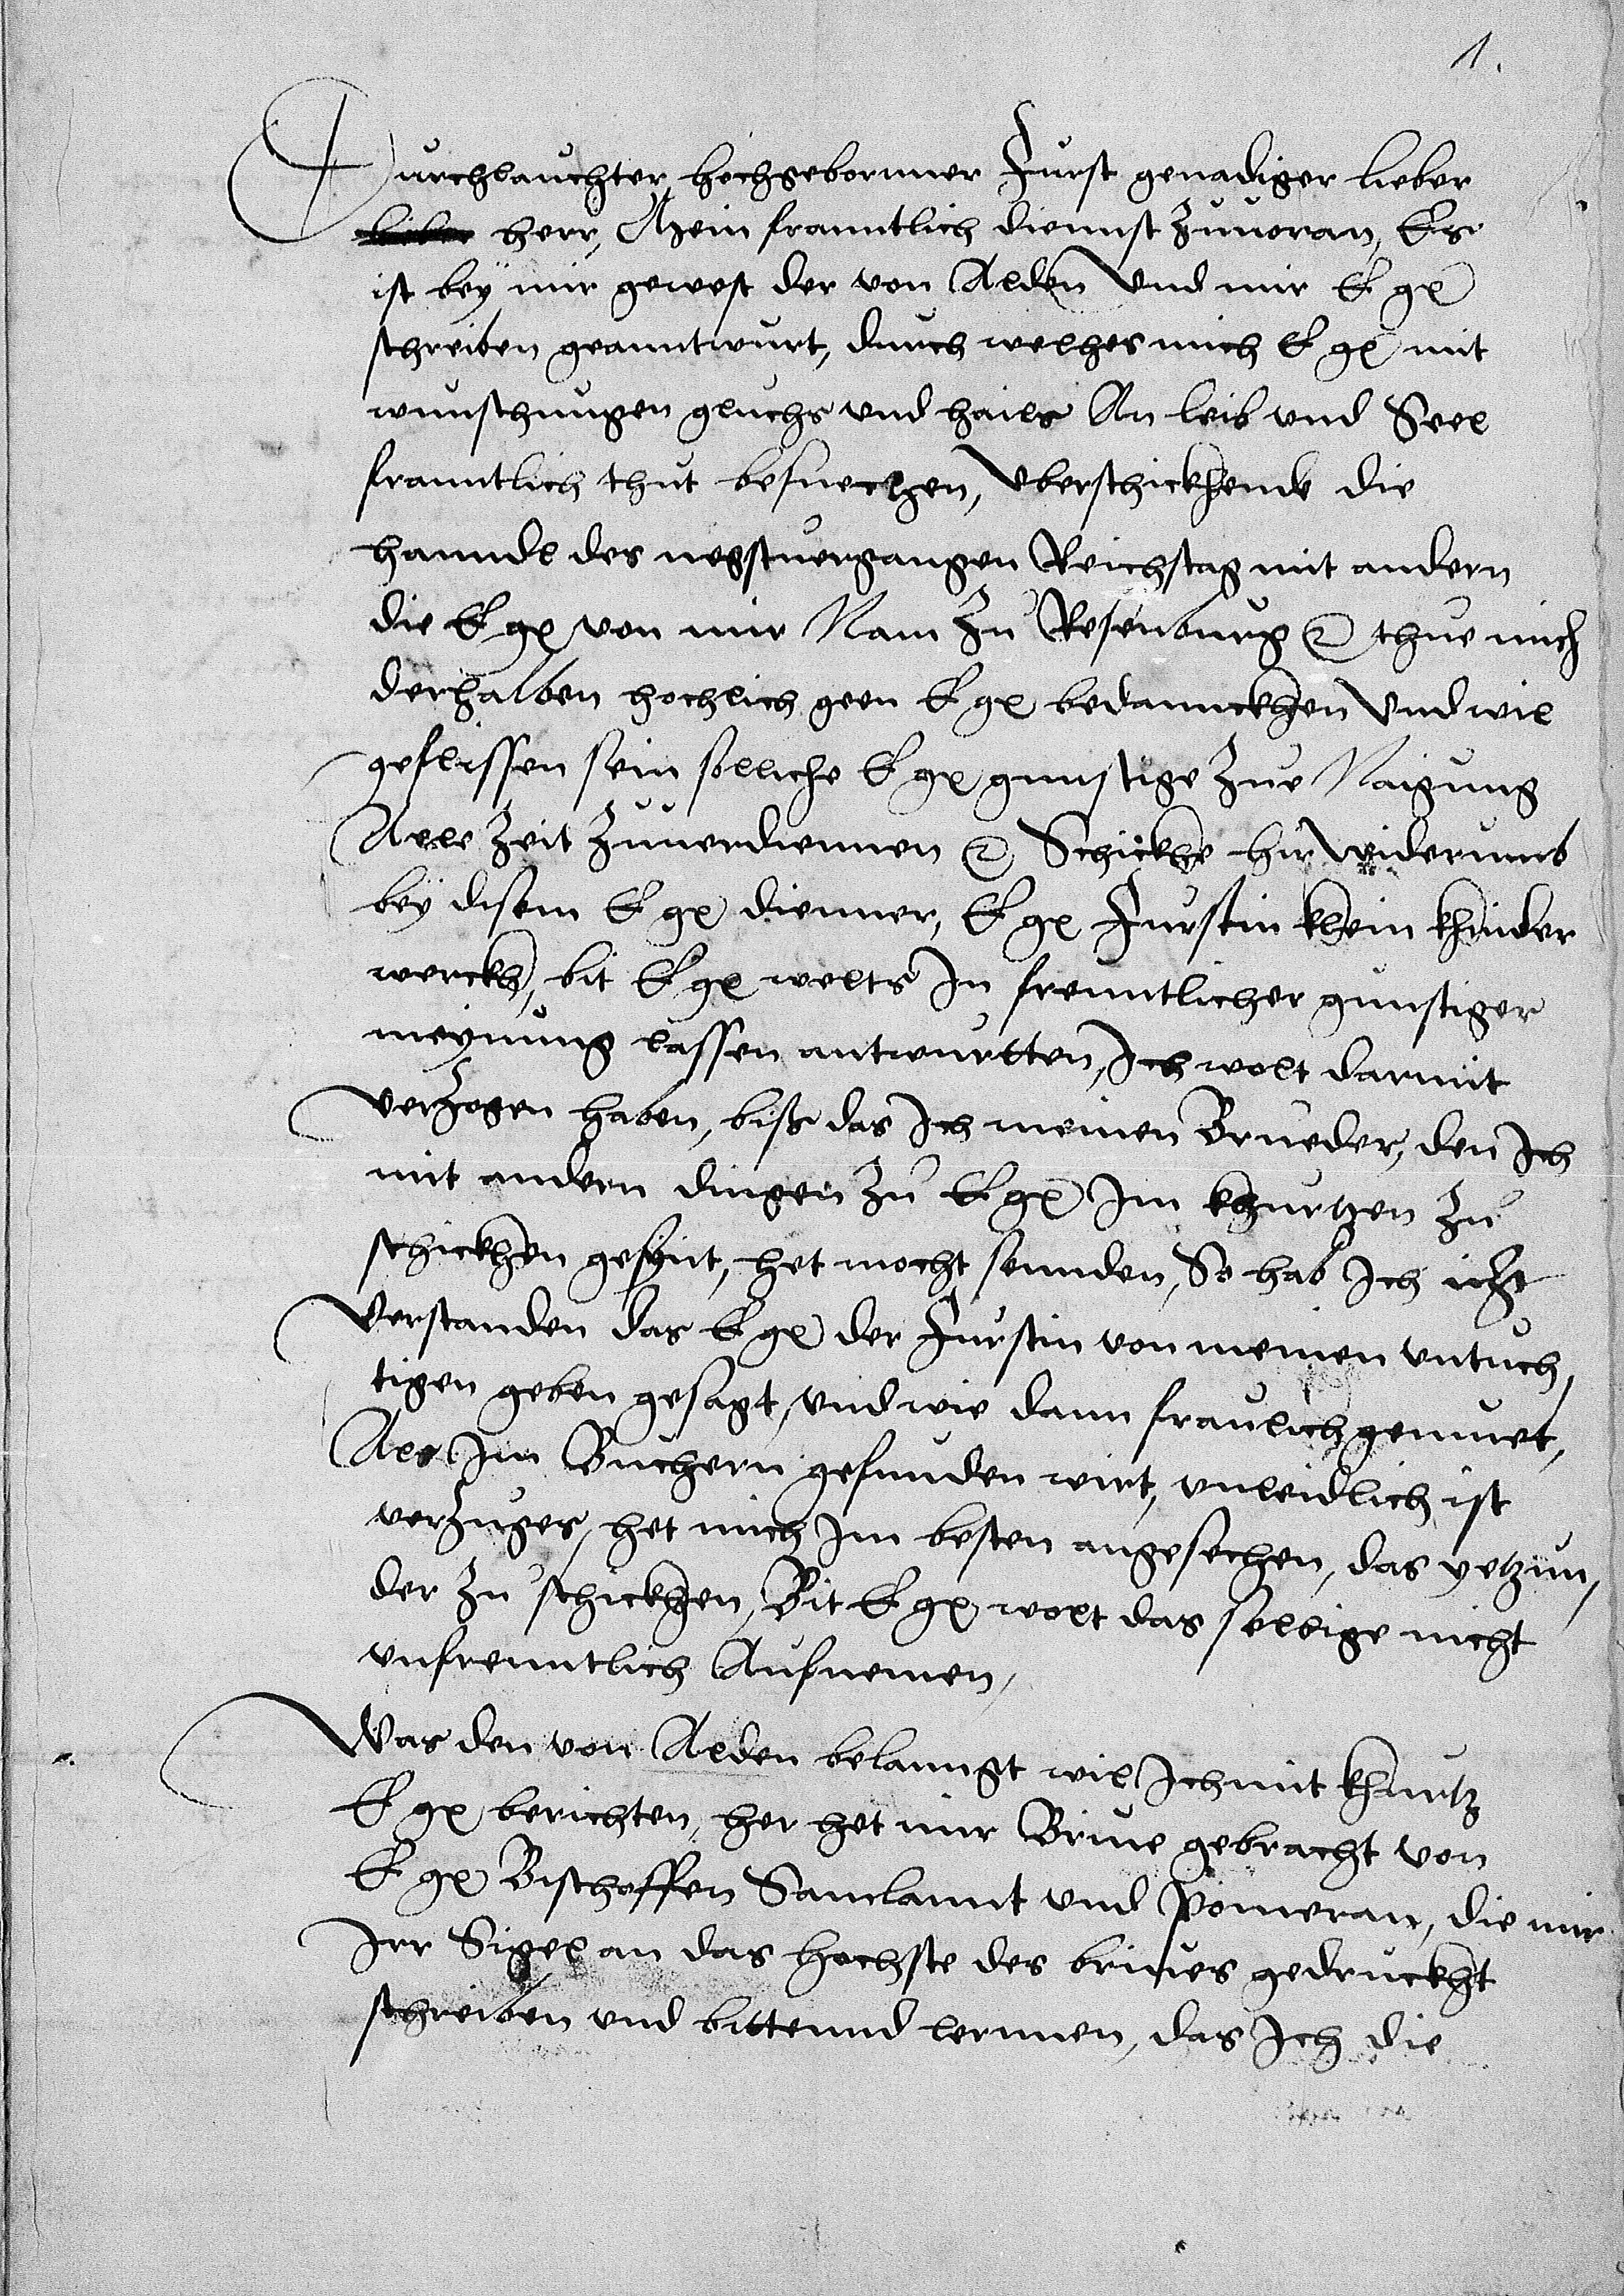 1.
Durchlauchter, hochgebornner Furst genadiger lieber
lieber herr, Mein franntlich diennst zuuoran, Es
ist bey mir gewest der von Alden Vnd mir E gn
schreiben geanntwurt, durch welhes mich E gn mit
wunschungen gluchs vnd hails An leib vnd Seel
franntlich thut besuechen, Vberschickhende die
hanndl des negstuergangen Reichstag mit andern
die E gn von mir Nam zu Resenburg thue mich
derhalben hochlich geen E gn bedannckhen Vnd wil
geflissen sein solliche E gn gunstige zue Naigung
Alle zeit zuuerdiennen Schickhe hir Widerumb
bey disem E gn dienner, E gn Furstin khein khinder
werckh, bit E gn welts In frenntlicher gunstiger
meynung lassen antwurtten, Ich wolt darmit
verzogen haben, biss das Ich meinen Brueder, den Ich
mit andern dingen zu E gn Im khurtzen zu
schickhen gesynt, het mocht sennden, So hab Ich itzt
Verstanden das E gn der Furstin von meinen vntuch,
tigen geben gesagt, vnd wie dann fraulich gemuet,
Als Im Buchern gefunden wirt, vnleidlich ist
verzuges, het mich Im besten angesechen, das yetzun,
der zu schickhen, Bit E gn wolt das sellbige nicht
vnfrenntlich Aufnemen,
Was den von Alden belanngt wil Ich mit khurtz
E gn berichten, her het mir Briue gebracht von
E gn Bischoffen Samlannt vnd Pomeran, die mir
Irr Sigel an das hochste des briues gedruckht
schreiben vnd bittennd lernnen, das Ich die